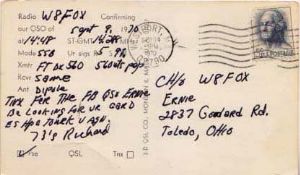 Radio W8FOX Confirming
our QSO of Sept 9, 1970
at 14:48 ST-GMT
Mode SSB Ur sigs 5-9
Xmtr FT dx 560 560 wts
Rcvr same
Ant Dipole
TNX FOR THE FB QSO ERNIE
Be Looking for ur card
ES Hope to
73's Richard
Pse QSL Tnx
C/o W8FOX
Ernie
2837 Goddard Rd.
Toledo, Ohio